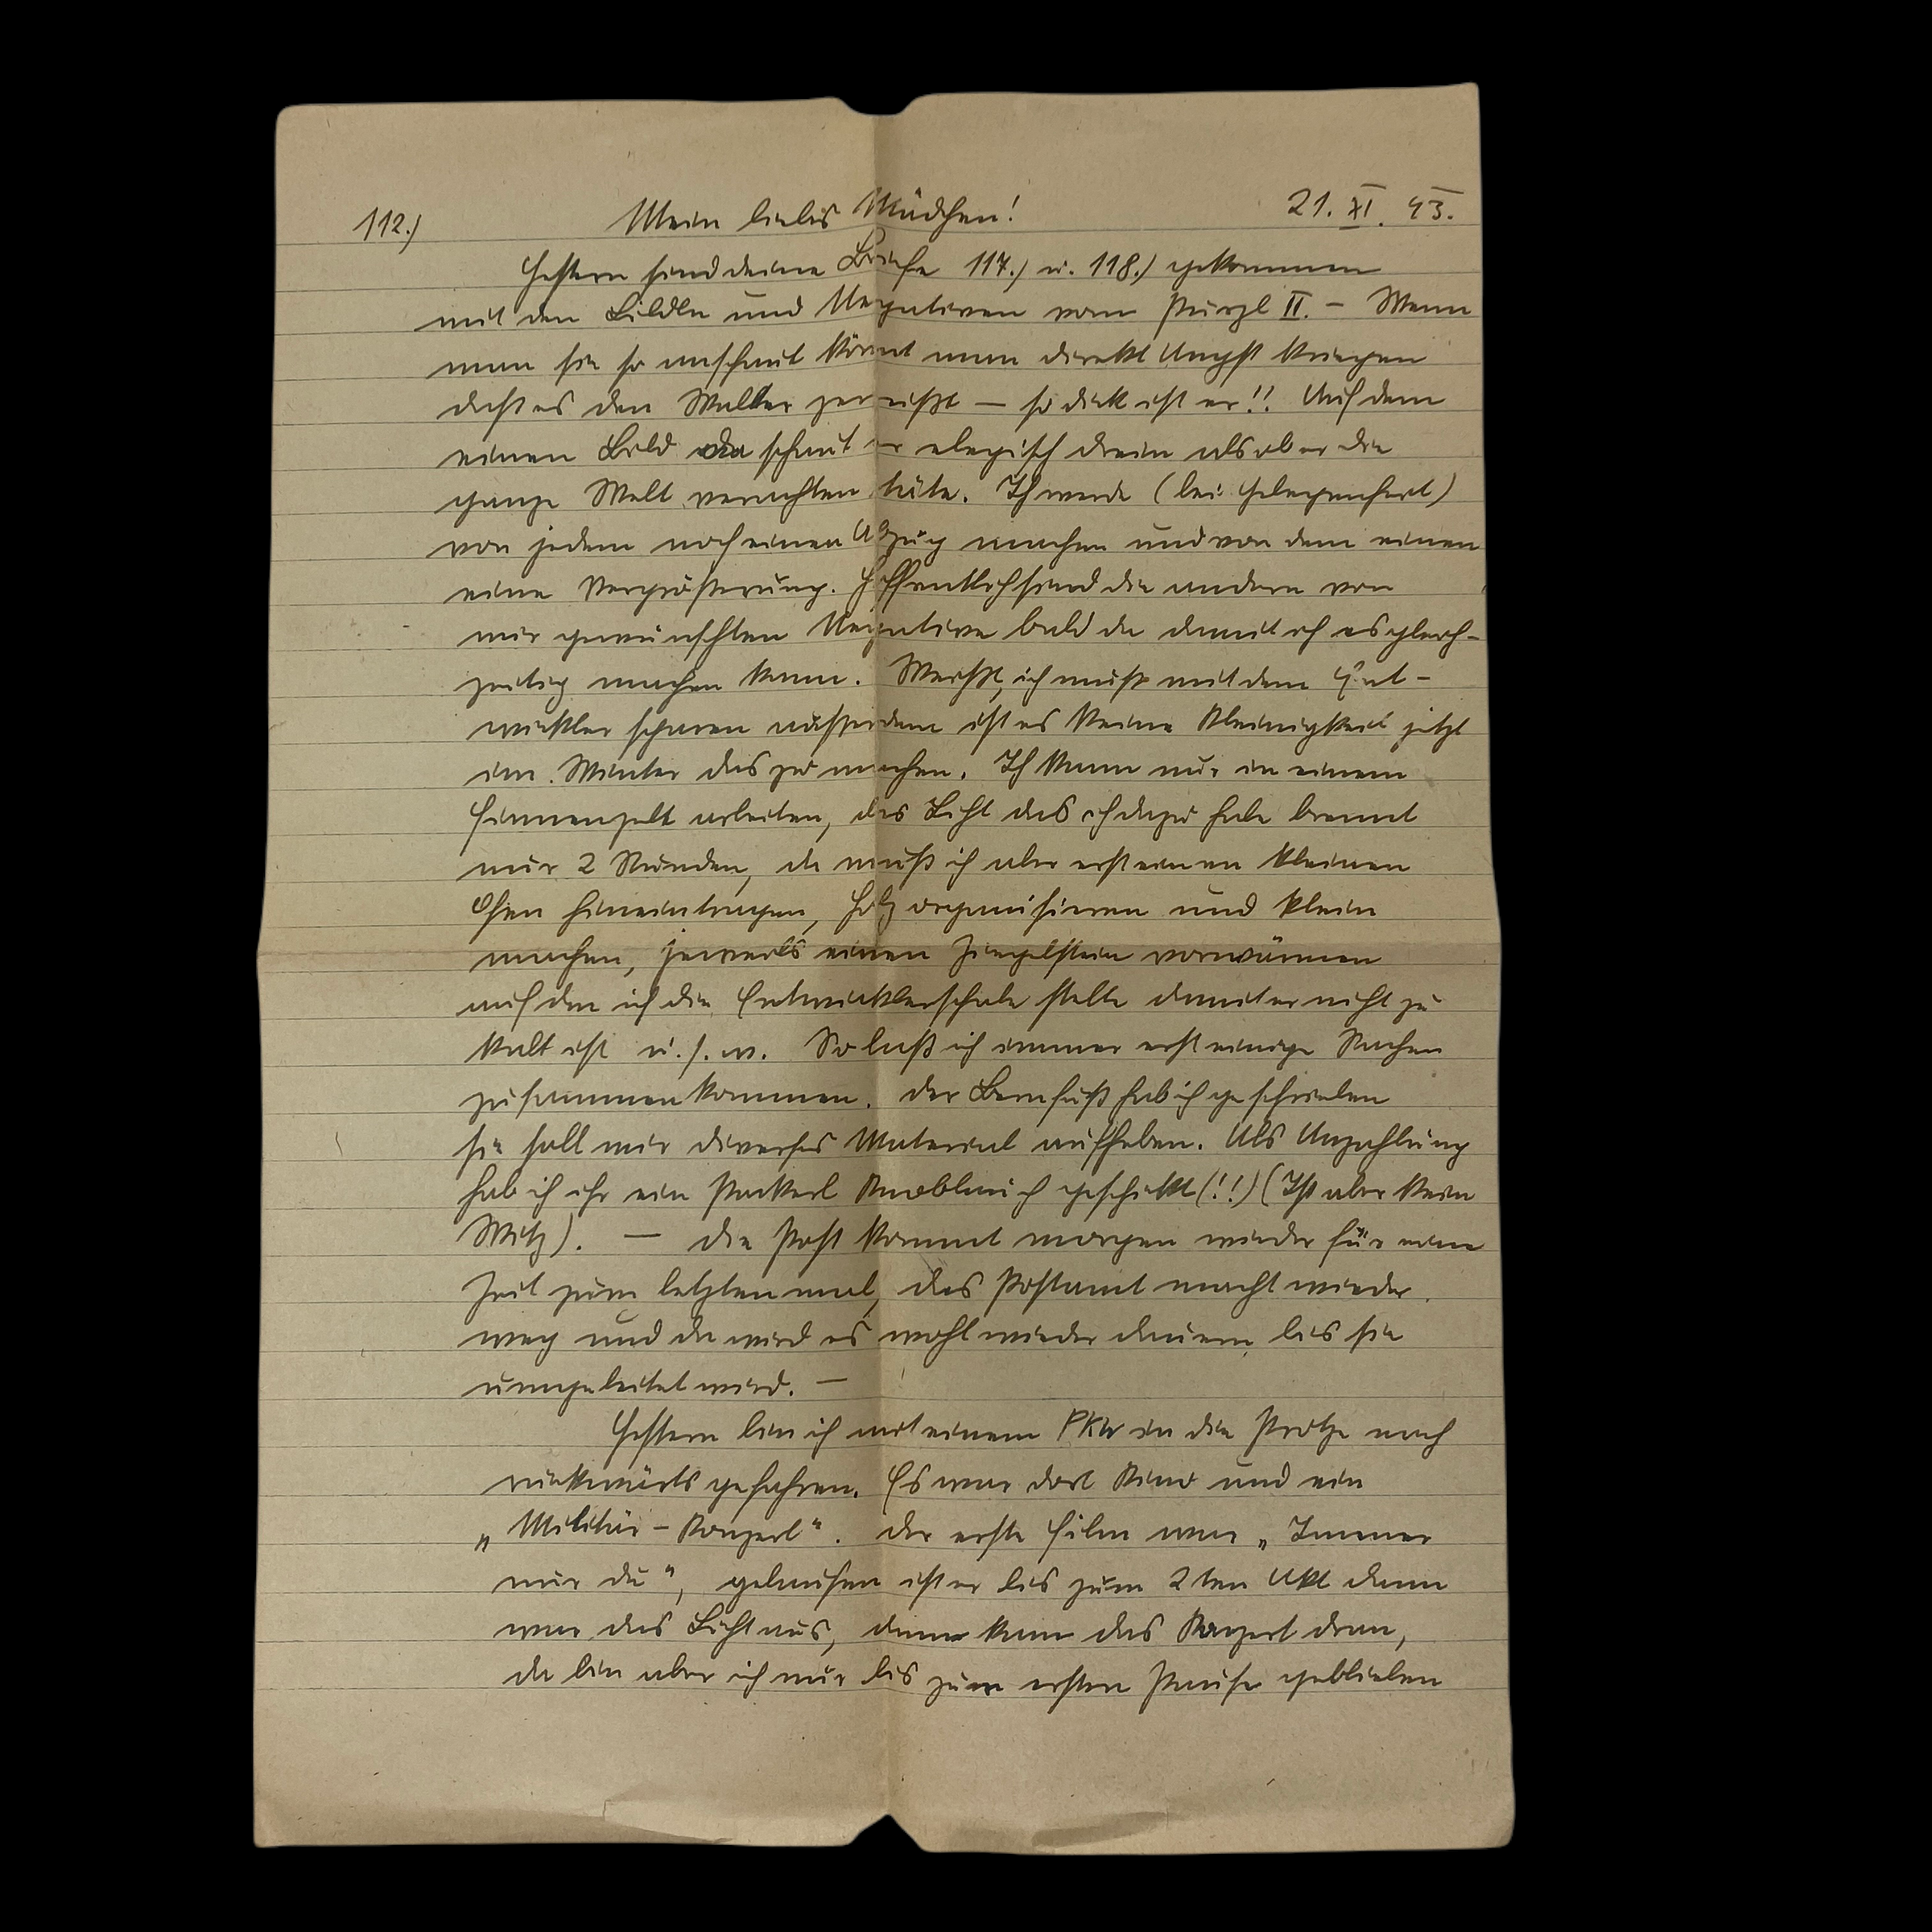 112.) Mein liebes Mädchen! 21. XI. 43.
Gestern sind deine Briefe 117.) u. 118.) gekommen
mit den Bildln und Negativen vom Purzl II. – Wenn
man sie so anschaut könnt man direkt Angst kriegen
dass es den Walter zerreißt — so dick ist er!! Auf dem
einen Bild da schaut er elegisch drein als ob er die
ganze Welt verachten täte. Ich werde (bei Gelegenheit)
von jedem noch einen Abzug machen und von dem einen
eine Vergrößerung. Hoffentlich sind die andern von
mir gewünschten Negative bald da damit ich es gleich-
zeitig machen kann. Weißt, ich muß mit dem Ent-
wickler sparen außerdem ist es keine Kleinigkeit jetzt
im Winter das zu machen. Ich kann nur in einem
Finnenzelt arbeiten, das Licht das ich dazu habe brennt
nur 2 Stunden, da muß ich aber erst einen kleinen
Ofen hineintragen, Holz organisieren und klein
machen, jeweils einen Ziegelstein vorwärmen
auf den ich die Entwicklerschale stelle damit er nicht zu
kalt ist u.s.w. So laß ich immer erst einige Sachen
zusammenkommen. Der Barnfuß hab ich geschrieben
sie soll mir diverses Material aufheben. Als Anzahlung
hab ich ihr ein Packerl Knoblauch geschickt (!!) (Ist aber kein
Witz). — Die Post kommt morgen wieder für eine
Zeit zum letzten mal, das Postamt macht wieder
weg und da wird es wohl wieder dauern bis sie
umgeleitet wird. —
Gestern bin ich mit einem PKW in die Protze nach
rückwärts gefahren. Es war dort Kino und ein
„Militär-Konzert“. Der erste Film war „Immer
nur du“, gelaufen ist er bis zum 2ten Akt dann
war das Licht aus, dann kam das Konzert dran,
da bin aber ich nur bis zur ersten Pause geblieben